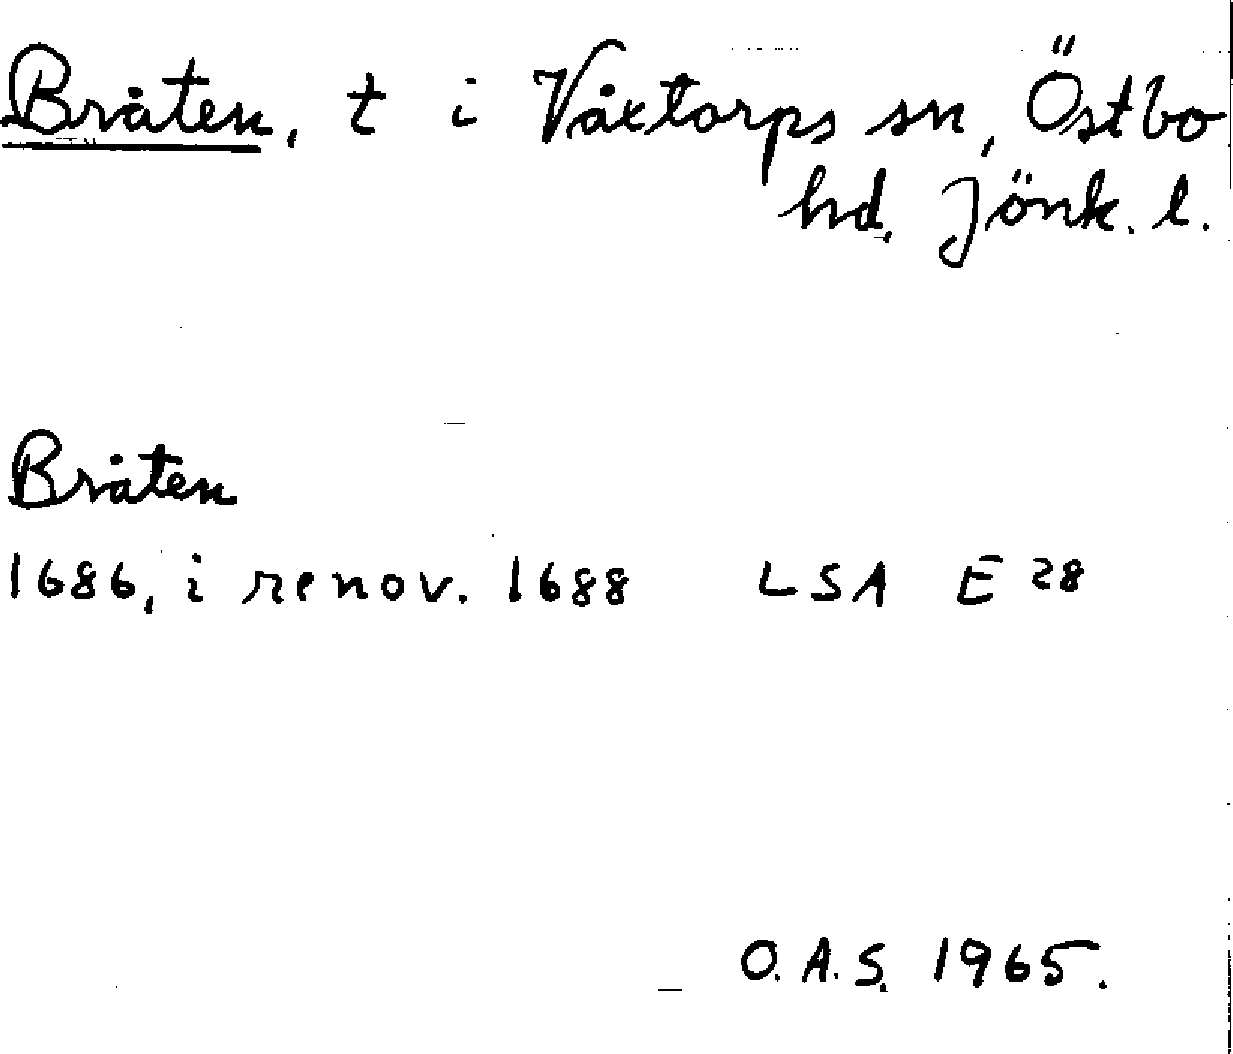 Bråten, t i Våxtorps sn, Östbo
hd, Jönk. l.
Bråten
1686, i renov. 1688 LSA E 28
O.A.S. 1965.